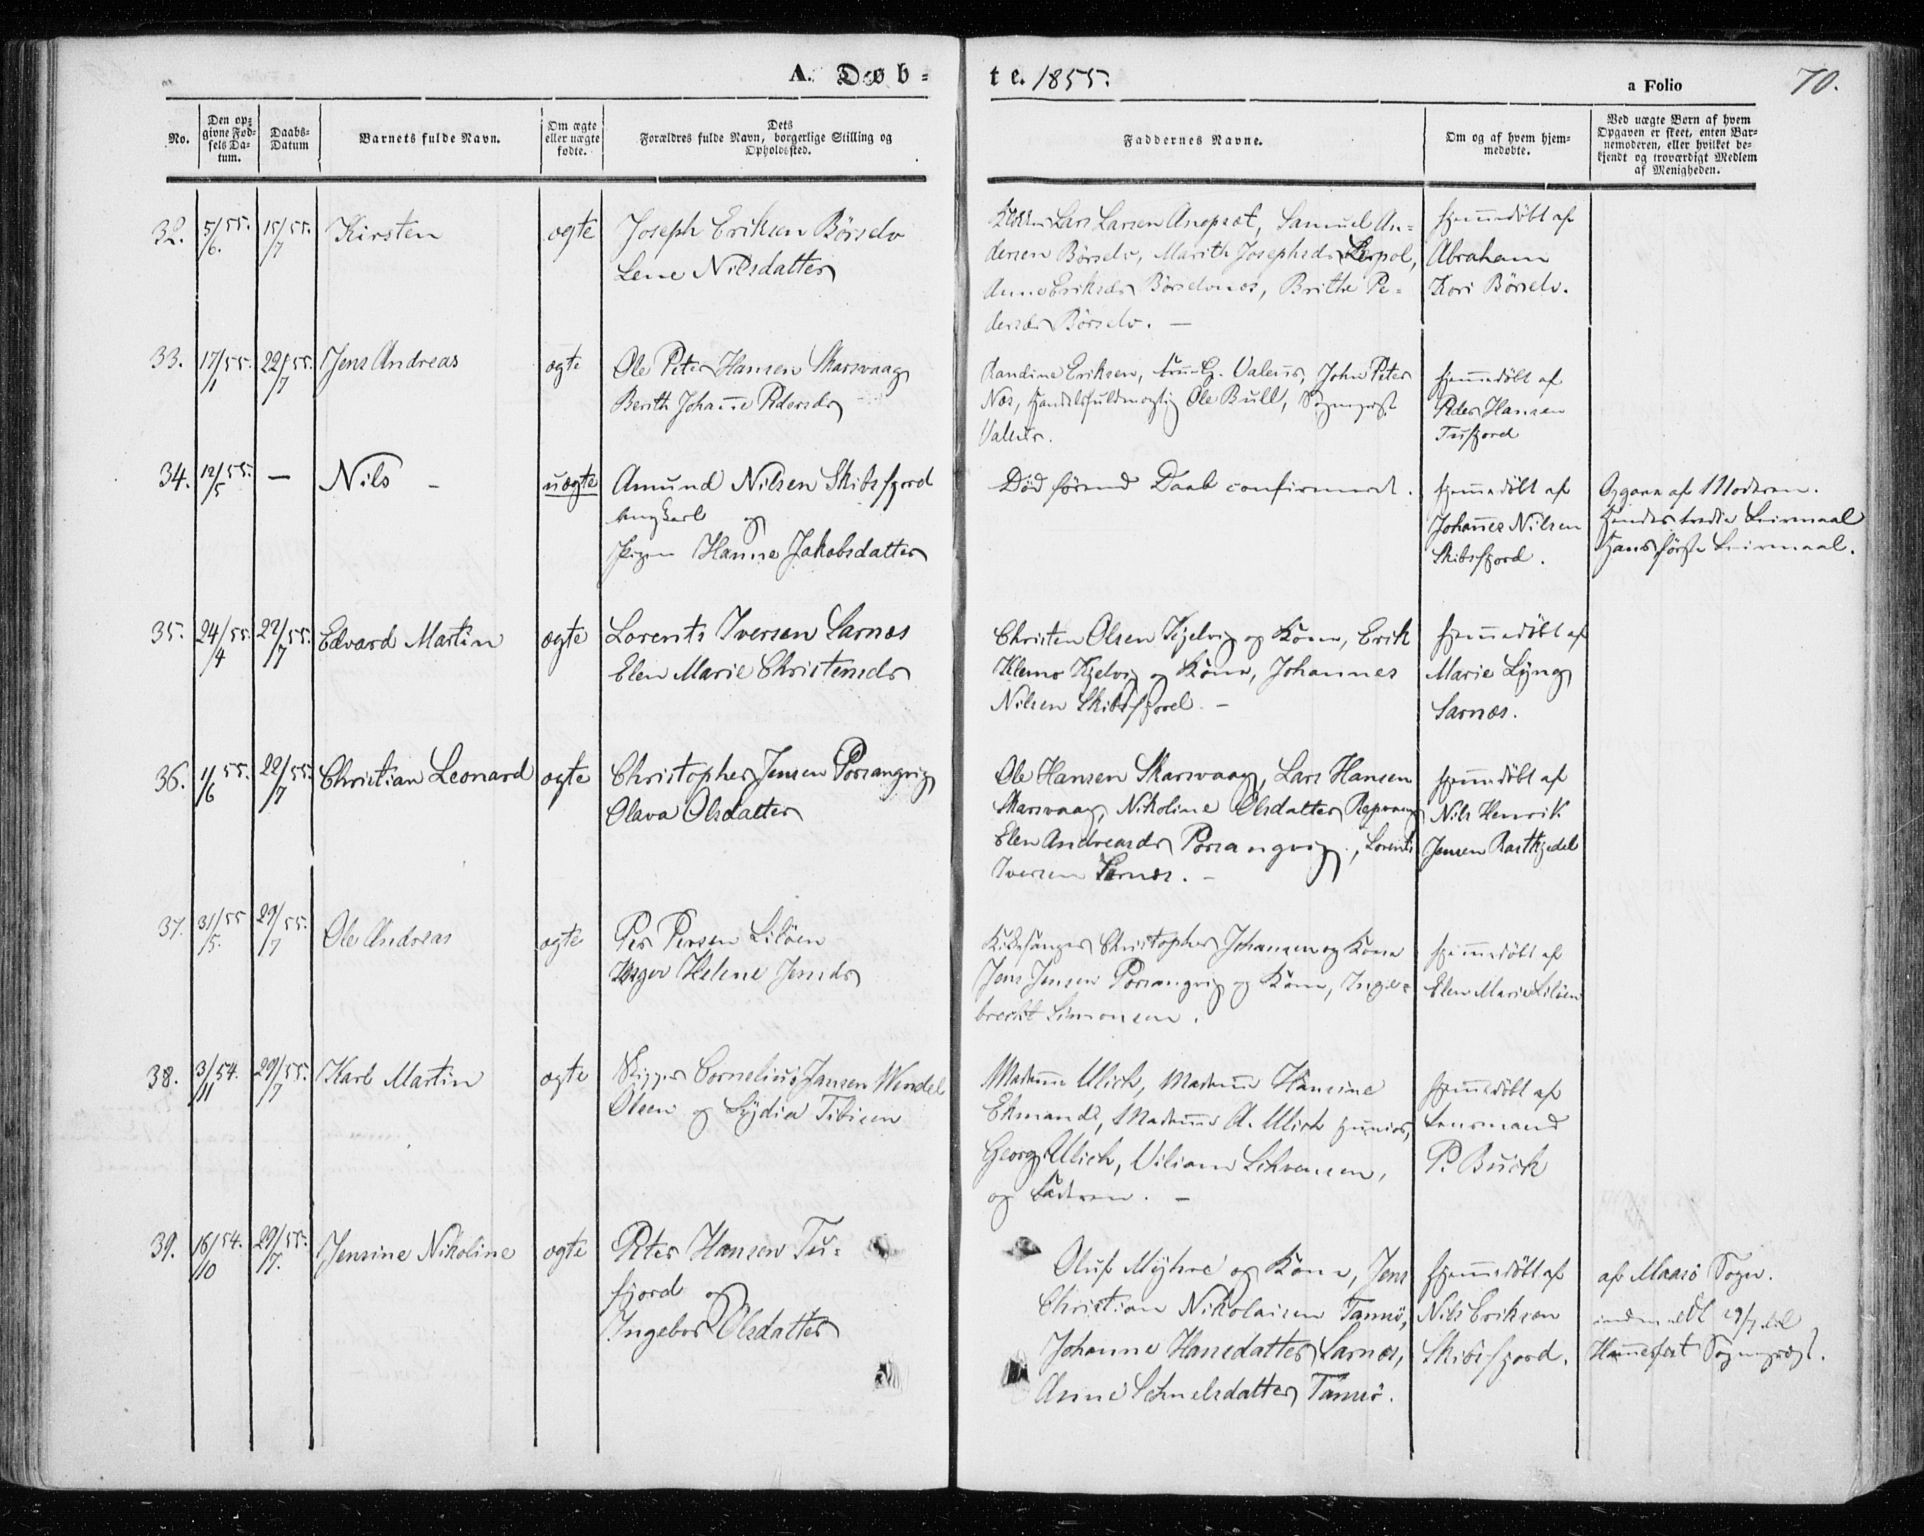 A. Døb=
te. 1855.
a Folio
70.
No.
Den op=
givne Fød=
sels Da=
tum.
Daabs=
Datum
Barnets fulde Navn.
Om ægte
eller uægte
fødte.
Dets
Forældres fulde Navn, borgerlige Stilling og
Opholdssted.
Faddernes Navne.
Om og af hvem hjem=
medøbte.
Ved uægte Børn af hvem
Opgaven er skeet, enten Bar=
nemoderen, eller hvilket be=
kjendt og troværdigt Medlem
af Menigheden.
32. 5/6 55. 15/7 55. Kirsten ægte
Joseph Eriksen Börselv
Lene Nilsdatter
Lars Larsen Anopset, Samuel An=
dersen Börselv, Marith Josephsdr Lerpol,
Anne Eriksdr Börselvnes, Brithe Pe=
dersdr Börselv. —
hjemmedöbt af
Abraham
Kori Börselv.
33. 17/1 55. 22/7 55. Jens Andreas ægte
Ole Peter Hansen Skarsvaag
Berith Johanne Pedersdr
Randine Eriksen, Valeur, John Peter
Næs, Handelsfuldmægtig Ole Bull, Sogneprest
Valeur.
hjemmedöbt af
Peder Hansen
Tufjord
34. 12/5 55. — Nils — uægte
Amund Nilsen Skibsfjord
Ungkarl og
Pigen Hanne Jakobsdatter
Död förend Daab confirmeret.
hjemmedöbt af
Johannes Nilsen
Skibsfjord.
Opgave af Moderen.
Hendes tredie Leiermaal
Hans förste Leiermaal.
35. 24/4 55. 22/7 55. Edvard Martin ægte
Lorents Iversen Sarnæs
Elen Marie Christensdr
Christen Olsen Kjelvig og Kone, Erik
Klemo Kjelvig og Kone, Johannes
Nilsen Skibsfjord. —
hjemmedöbt af
Marie Lyng
Sarnæs.
36. 1/6 55. 22/7 55. Christian Leonard ægte
Christopher Jensen Porsangvig
Olava Olsdatter
Ole Hansen Skarsvaag, Lars Hansen
Skarsvaag, Nikoline Olsdatter Repvaag
Elen Andreasdr Porsangvig, Lorents
Iversen Sarnæs. —
hjemmedöbt af
Nils Henrik
Jensen Rastkjedel
37. 31/5. 55 29/7 55. Ole Andreas ægte
Per Persen Lilöen
Helene Jensdr
Kirkesanger Christopher Johansen og Kone
Jens Jensen Porsangvig og Kone, Inge=
brecht Simonsen.
hjemmedöbt af
Elen Marie Lilöen
38. 3/11 54. 29/7 55. Karl Martin ægte
Skipper Cornelius Jansen Wendel
Olsen og Lydia Tibisen
Madame Ulich, Madame Hansine
Ekmand, Madame A. Ulich junior,
Georg Ulich, Viliam
og Faderen. —
hjemmedöbt af
Lensmand
P. Buck
39. 16/10 54. 29/7. 55. Jensine Nikoline ægte
Peter Hansen Tu=
fjord og
Ingebor Olsdatter
Oluf Myhre og Kone, Jens
Christian Nikolaisen Tamsö,
Johanne Hansdatter Sarnæs,
Anne Tamsö.
hjemmedöbt af
Nils Eriksen
Skibsfjord.
af Maasö Sogn.
indmeldt 29/7 til
Hammerfest Sognepræst.